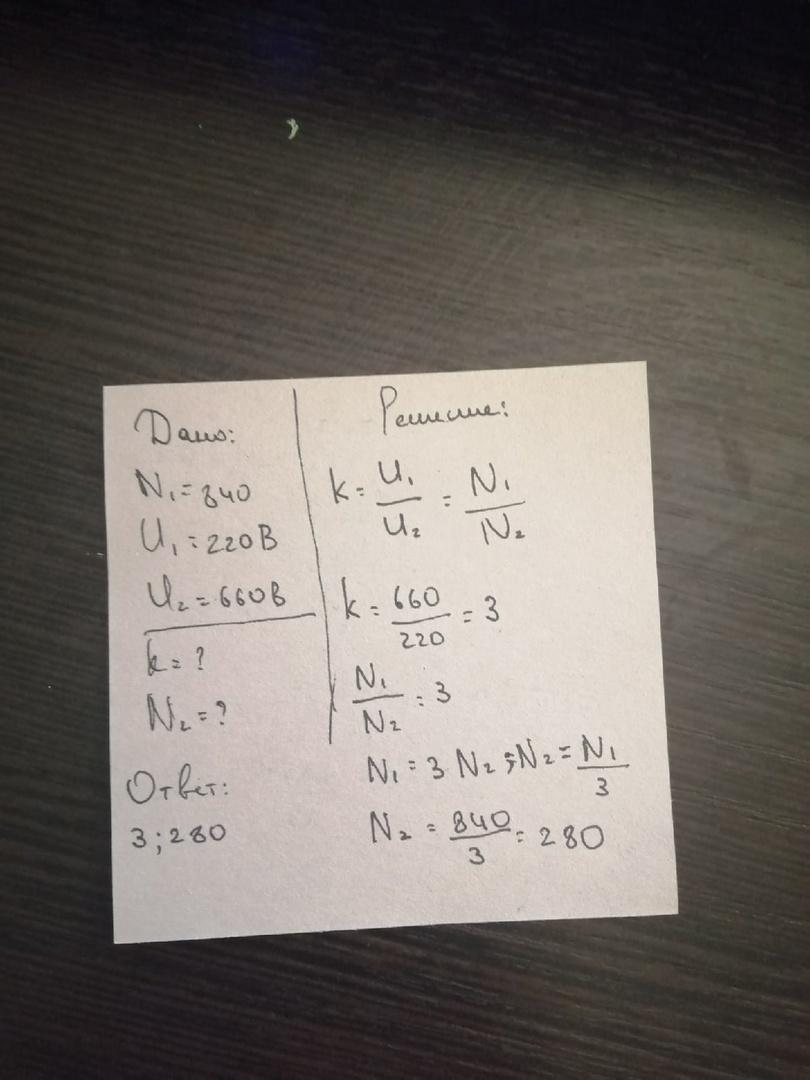 Дано:
N₁ = 840
U₁ = 220 В
U₂ = 660 В
k = ?
N₂ = ?
Ответ:
3 ; 280
Решение:
k = U₁/U₂ = N₁/N₂
k = 660/220 = 3
N₁/N₂ = 3
N₁ = 3 N₂ ; N₂ = N₁/3
N₂ = 840/3 = 280